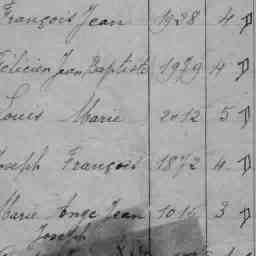 François Jean 1928 4 D
Félicien Jean Baptiste 1979 4 D
Louis Marie 2012 5 D
Joseph François 1872 4 D
Marie Ange Jean 1016 3 D
Joseph